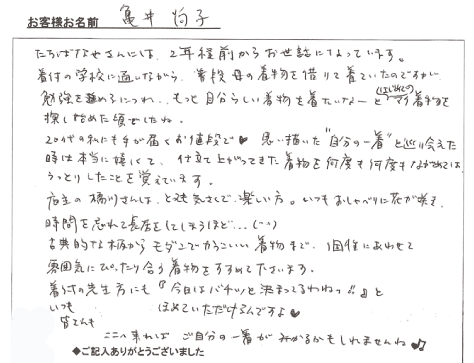 お客様お名前 亀井 均子
たちばなやさんには、2年程前からお世話になっています。
着付の学校に通いながら、普段母の着物を借りて着ていたのですが、
勉強を進めるにつれ、もっと自分らしい着物を着たいなーと(はじめての)マイ着物を
探し始めた頃でしたね。
20代の私にも手が届くお値段で♥ 思い描いた"自分の一着"と巡り会えた
時は本当に嬉しくて、仕立て上がってきた着物を何度も何度もながめては
うっとりしたことを覚えています。
店主の橘川さんは、とても気さくで楽しい方。いつもおしゃべりに花が咲き、
時間を忘れて長居をしてしまうほど…(^^)
古典的な柄からモダンでかっこいい着物まで、1個性にあわせて
雰囲気にぴったり合う着物をすすめて下さいます。
着付の先生方にも『今日はバチッと決まってるわねっ!!』と
いつも ほめていただけるんですよ♥
皆さんも
ここへ来れば ご自分の一着が みつかるかもしれませんね♥♪
◆ご記入ありがとうございました